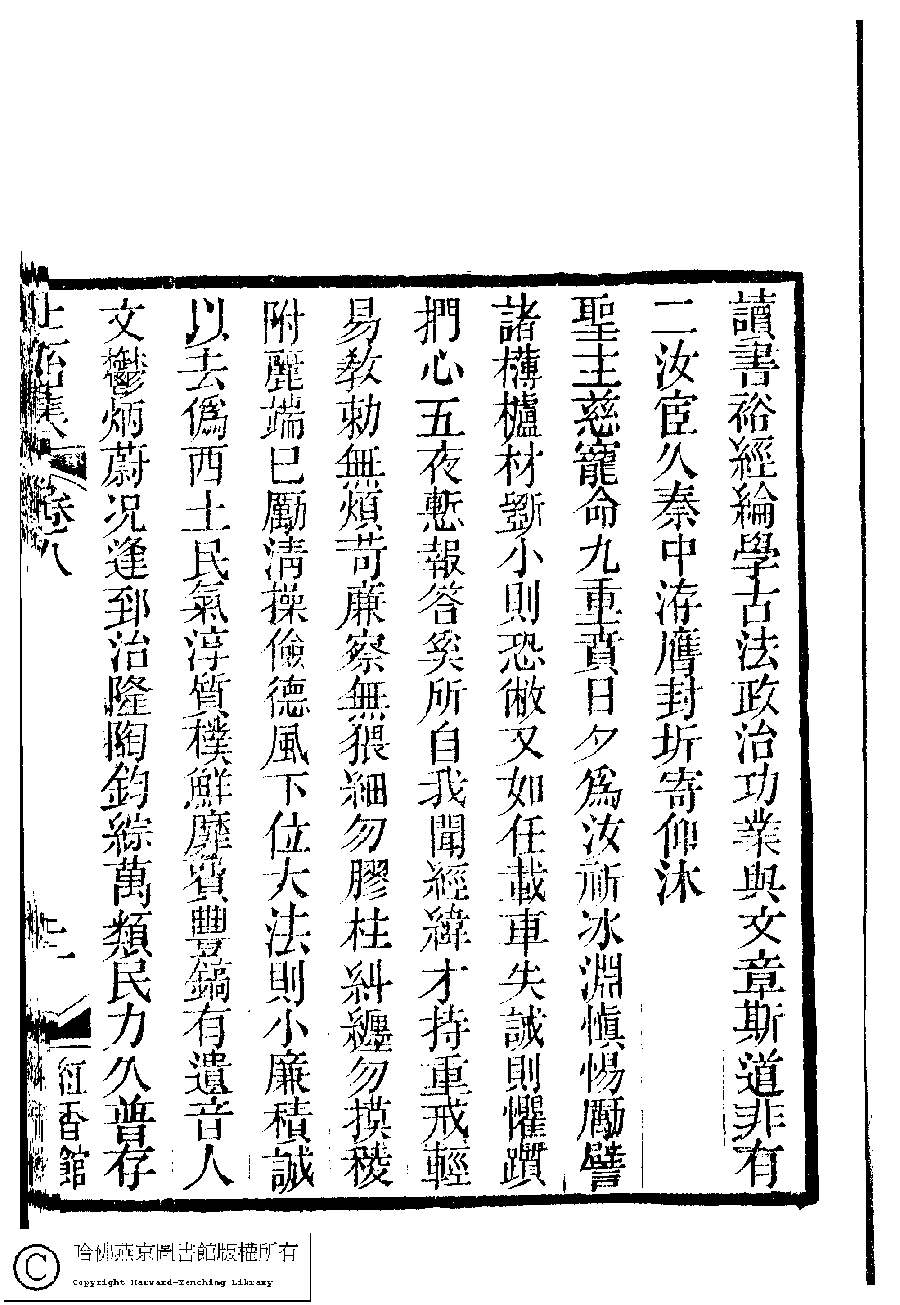 讀書裕經綸學古法政治功業與文章斯道非有
二汝宦久秦中洊膺封圻寄仰沐
聖主慈寵命九重賁日夕爲汝祈冰淵愼惕勵譬
諸欂櫨材斵小則恐敝又如任載車失誠則懼躓
捫心五夜慙報答奚所自我聞經緯才持重戒輕
易敎勅無煩苛廉察無猥細勿膠柱糾纏勿摸稜
附麗端巳勵淸操儉德風下位大法則小廉積誠
以去僞西土民氣淳質樸鮮靡費豐鎬有遺音人
文鬱炳蔚况逢郅治隆陶鈞綜萬類民力久普存
卷八
紅香館
哈佛燕京圖書館版權所有
Copyright Harvard-Yenching Library